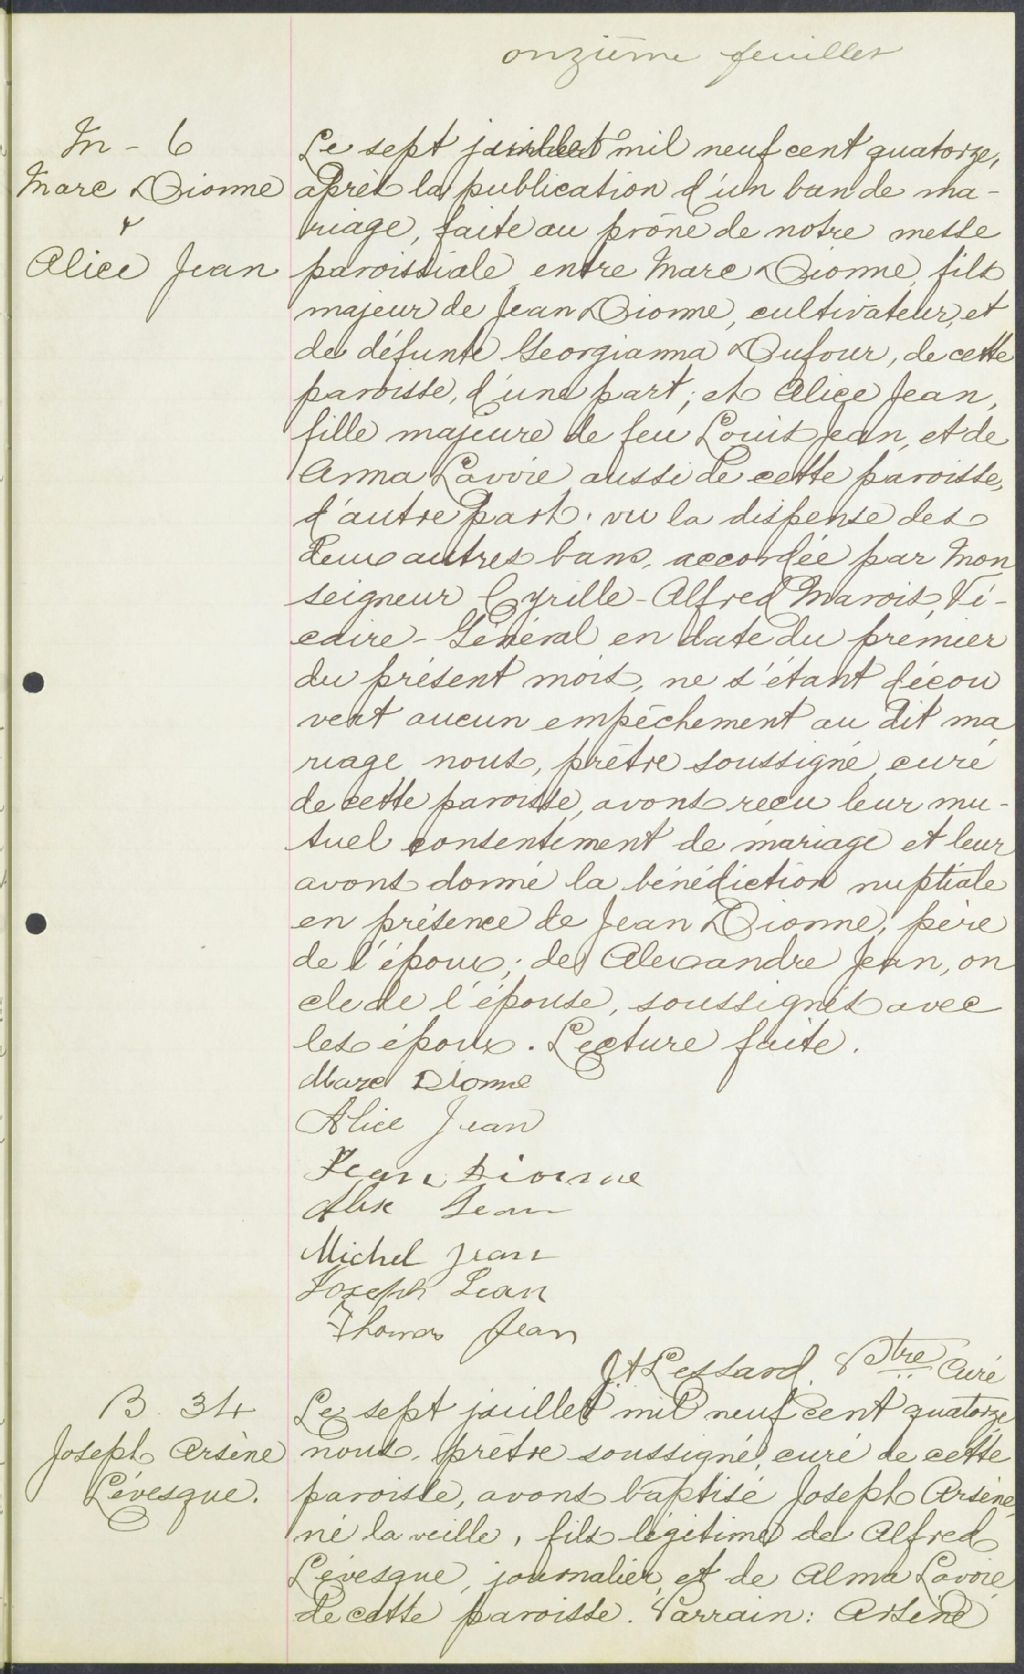 onzième feuillet
M - 6
Marc Dionne
&
Alice Jean
Le sept juillet mil neuf cent quatorze,
après la publication d'un ban de ma-
riage, faite au prône de notre messe
paroissiale entre Marc Dionne, fils
majeur de Jean Dionne, cultivateur, et
de défunte Georgianna Dufour, de cette
paroisse, d'une part; et Alice Jean,
fille majeure de feu Louis Jean, et de
Anna Lavoie aussi de cette paroisse,
d'autre part; vu la dispense des
deux autres bans, accordée par Mon
seigneur Cyrille-Alfred Marois, Vi-
caire-Général en date du prémier
du présent mois, ne s'étant décou
vert aucun empêchement au dit ma
riage nous, prêtre soussigné, curé
de cette paroisse, avons reçu leur mu-
tuel consentement de mariage et leur
avons donné la bénédiction nuptiale
en présence de Jean Dionne, père
de l'époux; de Alexandre Jean, on
cle de l'épouse, soussignés avec
les époux. Lecture faite.
Marc Dionne
Alice Jean
Jean Dionne
Alex Jean
Michel Jean
Joseph Jean
Thomas Jean
J A Lessard. Ptre Curé
B. 34
Joseph Arsène
Lévesque.
Le sept juillet mil neuf cent quatorze
nous, prêtre soussigné, curé de cette
paroisse, avons baptisé Joseph Arsène,
né la veille, fils légitime de Alfred
Lévesque, journalier, et de Alma Lavoie
de cette paroisse. Parrain: Arsène